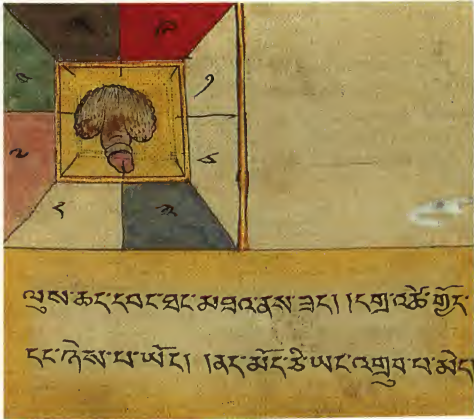 ལུས་ཆད་དབང་ཐང་མཐའ་ནས་ཟད། །དགྲ་འཚེ་གྱོད་
དང་ཉེས་པ་ཡོད། །ནད་མོད་ཅི་ཡང་འགྲུབ་པ་མེད།